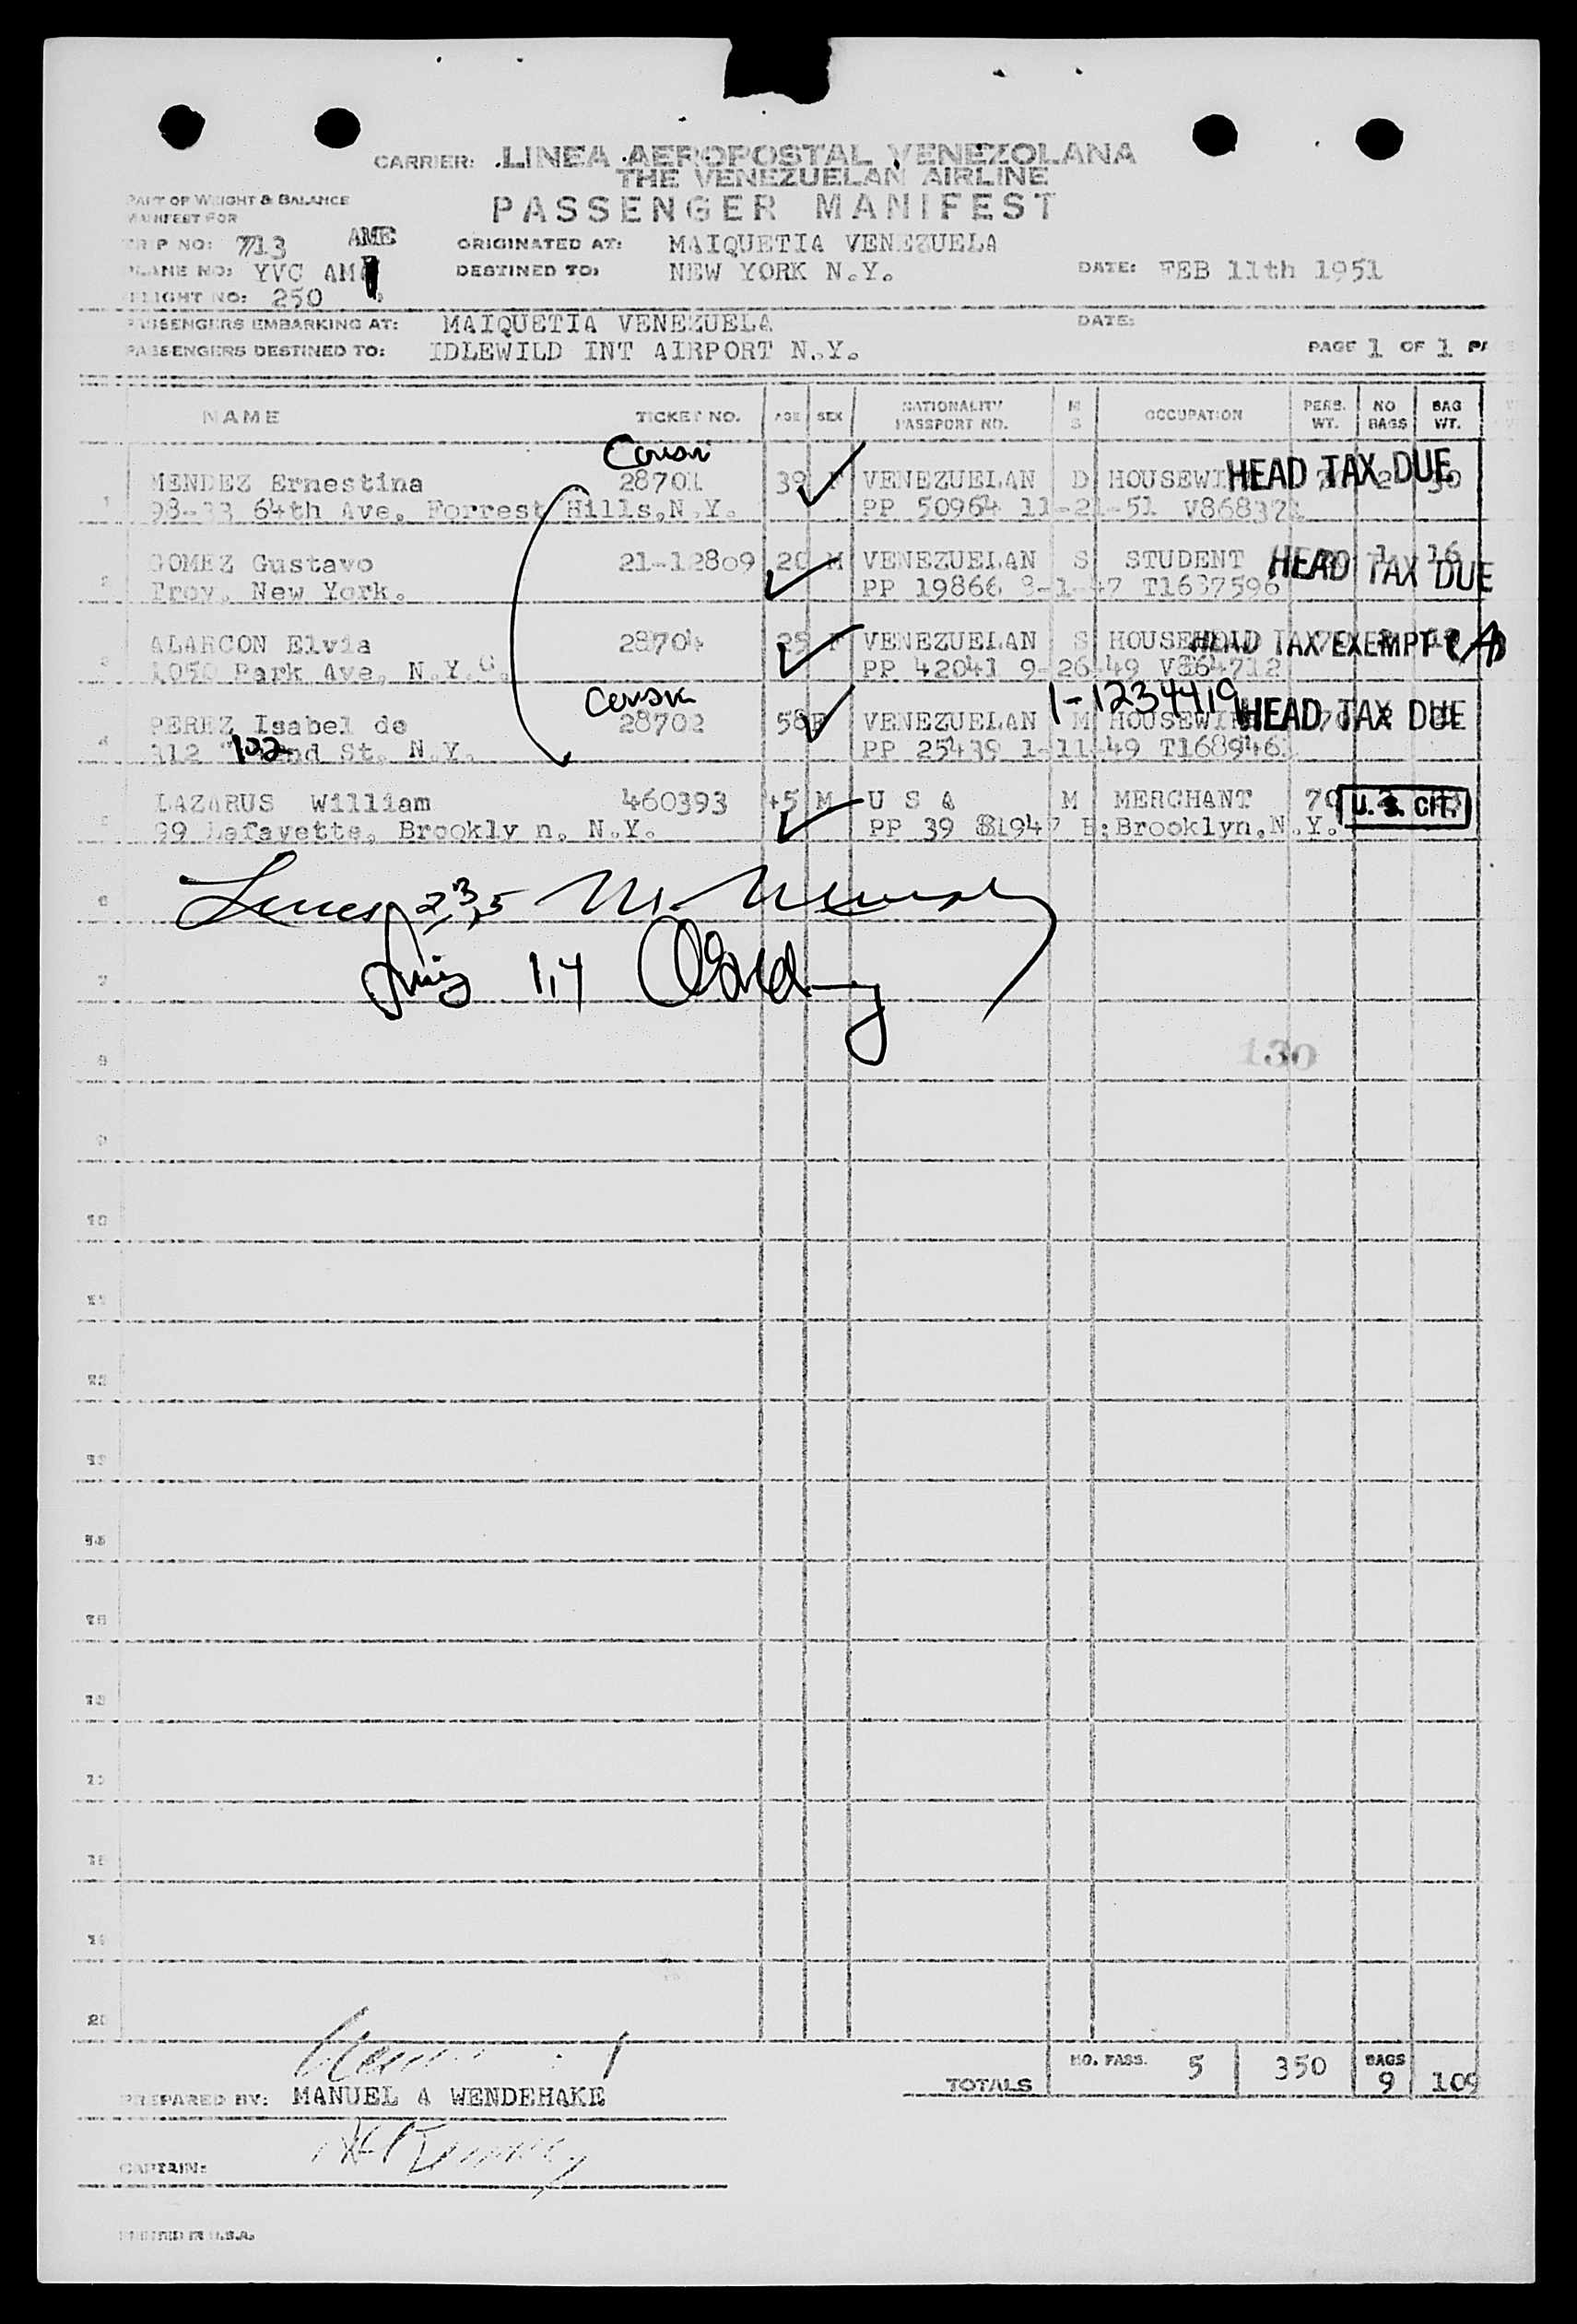 CARRIER: LINEA AEROPOSTAL VENEZOLANA
THE VENEZUELAN AIRLINE
PART OF WEIGHT & BALANCE
MANIFEST FOR
PASSENGER MANIFEST
TRIP NO: 713 AME
ORIGINATED AT: MAIQUETIA VENEZUELA
PLANE NO: YVC AM
DESTINED TO: NEW YORK N.Y.
DATE: FEB 11th 1951
FLIGHT NO: 250
PASSENGERS EMBARKING AT: MAIQUETIA VENEZUELA
DATE:
PASSENGERS DESTINED TO: IDLEWILD INT AIRPORT N.Y.
PAGE 1 OF 1
NAME TICKET NO. AGE SEX NATIONALITY PASSPORT NO. M S OCCUPATION PERS. WT. NO BAGS BAG WT.
1 MENDEZ Ernestina 28701 39 F VENEZUELAN D HOUSEWI HEAD TAX DUE
64th Ave, Forrest Hills,N.Y. PP 50964 11-21-51
2 GOMEZ Gustavo 21-12809 20 M VENEZUELAN S STUDENT 1 16 HEAD TAX DUE
Troy, New York. PP 19866 T1637596
3 ALARCON Elvia 28704 25 F VENEZUELAN S HEAD TAX EXEMPT
1050 Park Ave, N.Y.C. PP 42041 9-26-49
1-1234419
4 PEREZ Isabel de 28702 58 F VENEZUELAN M HOUSEWI HEAD TAX DUE
312 102nd St. N.Y. PP 25439 1-11-49
5 LAZARUS William 460393 45 M U S A M MERCHANT 70 U. S. CIT.
99 Lafayette, Brookly n, N.Y. PP 39 1947 B;Brooklyn,N.Y.
6
7
130
9
10
11
12
13
14
15
16
17
18
19
20
TOTALS NO. PASS. 5 350 BAGS 9 109
PREPARED BY: MANUEL A WENDEHAKE
CAPTAIN:
PRINTED IN U.S.A.